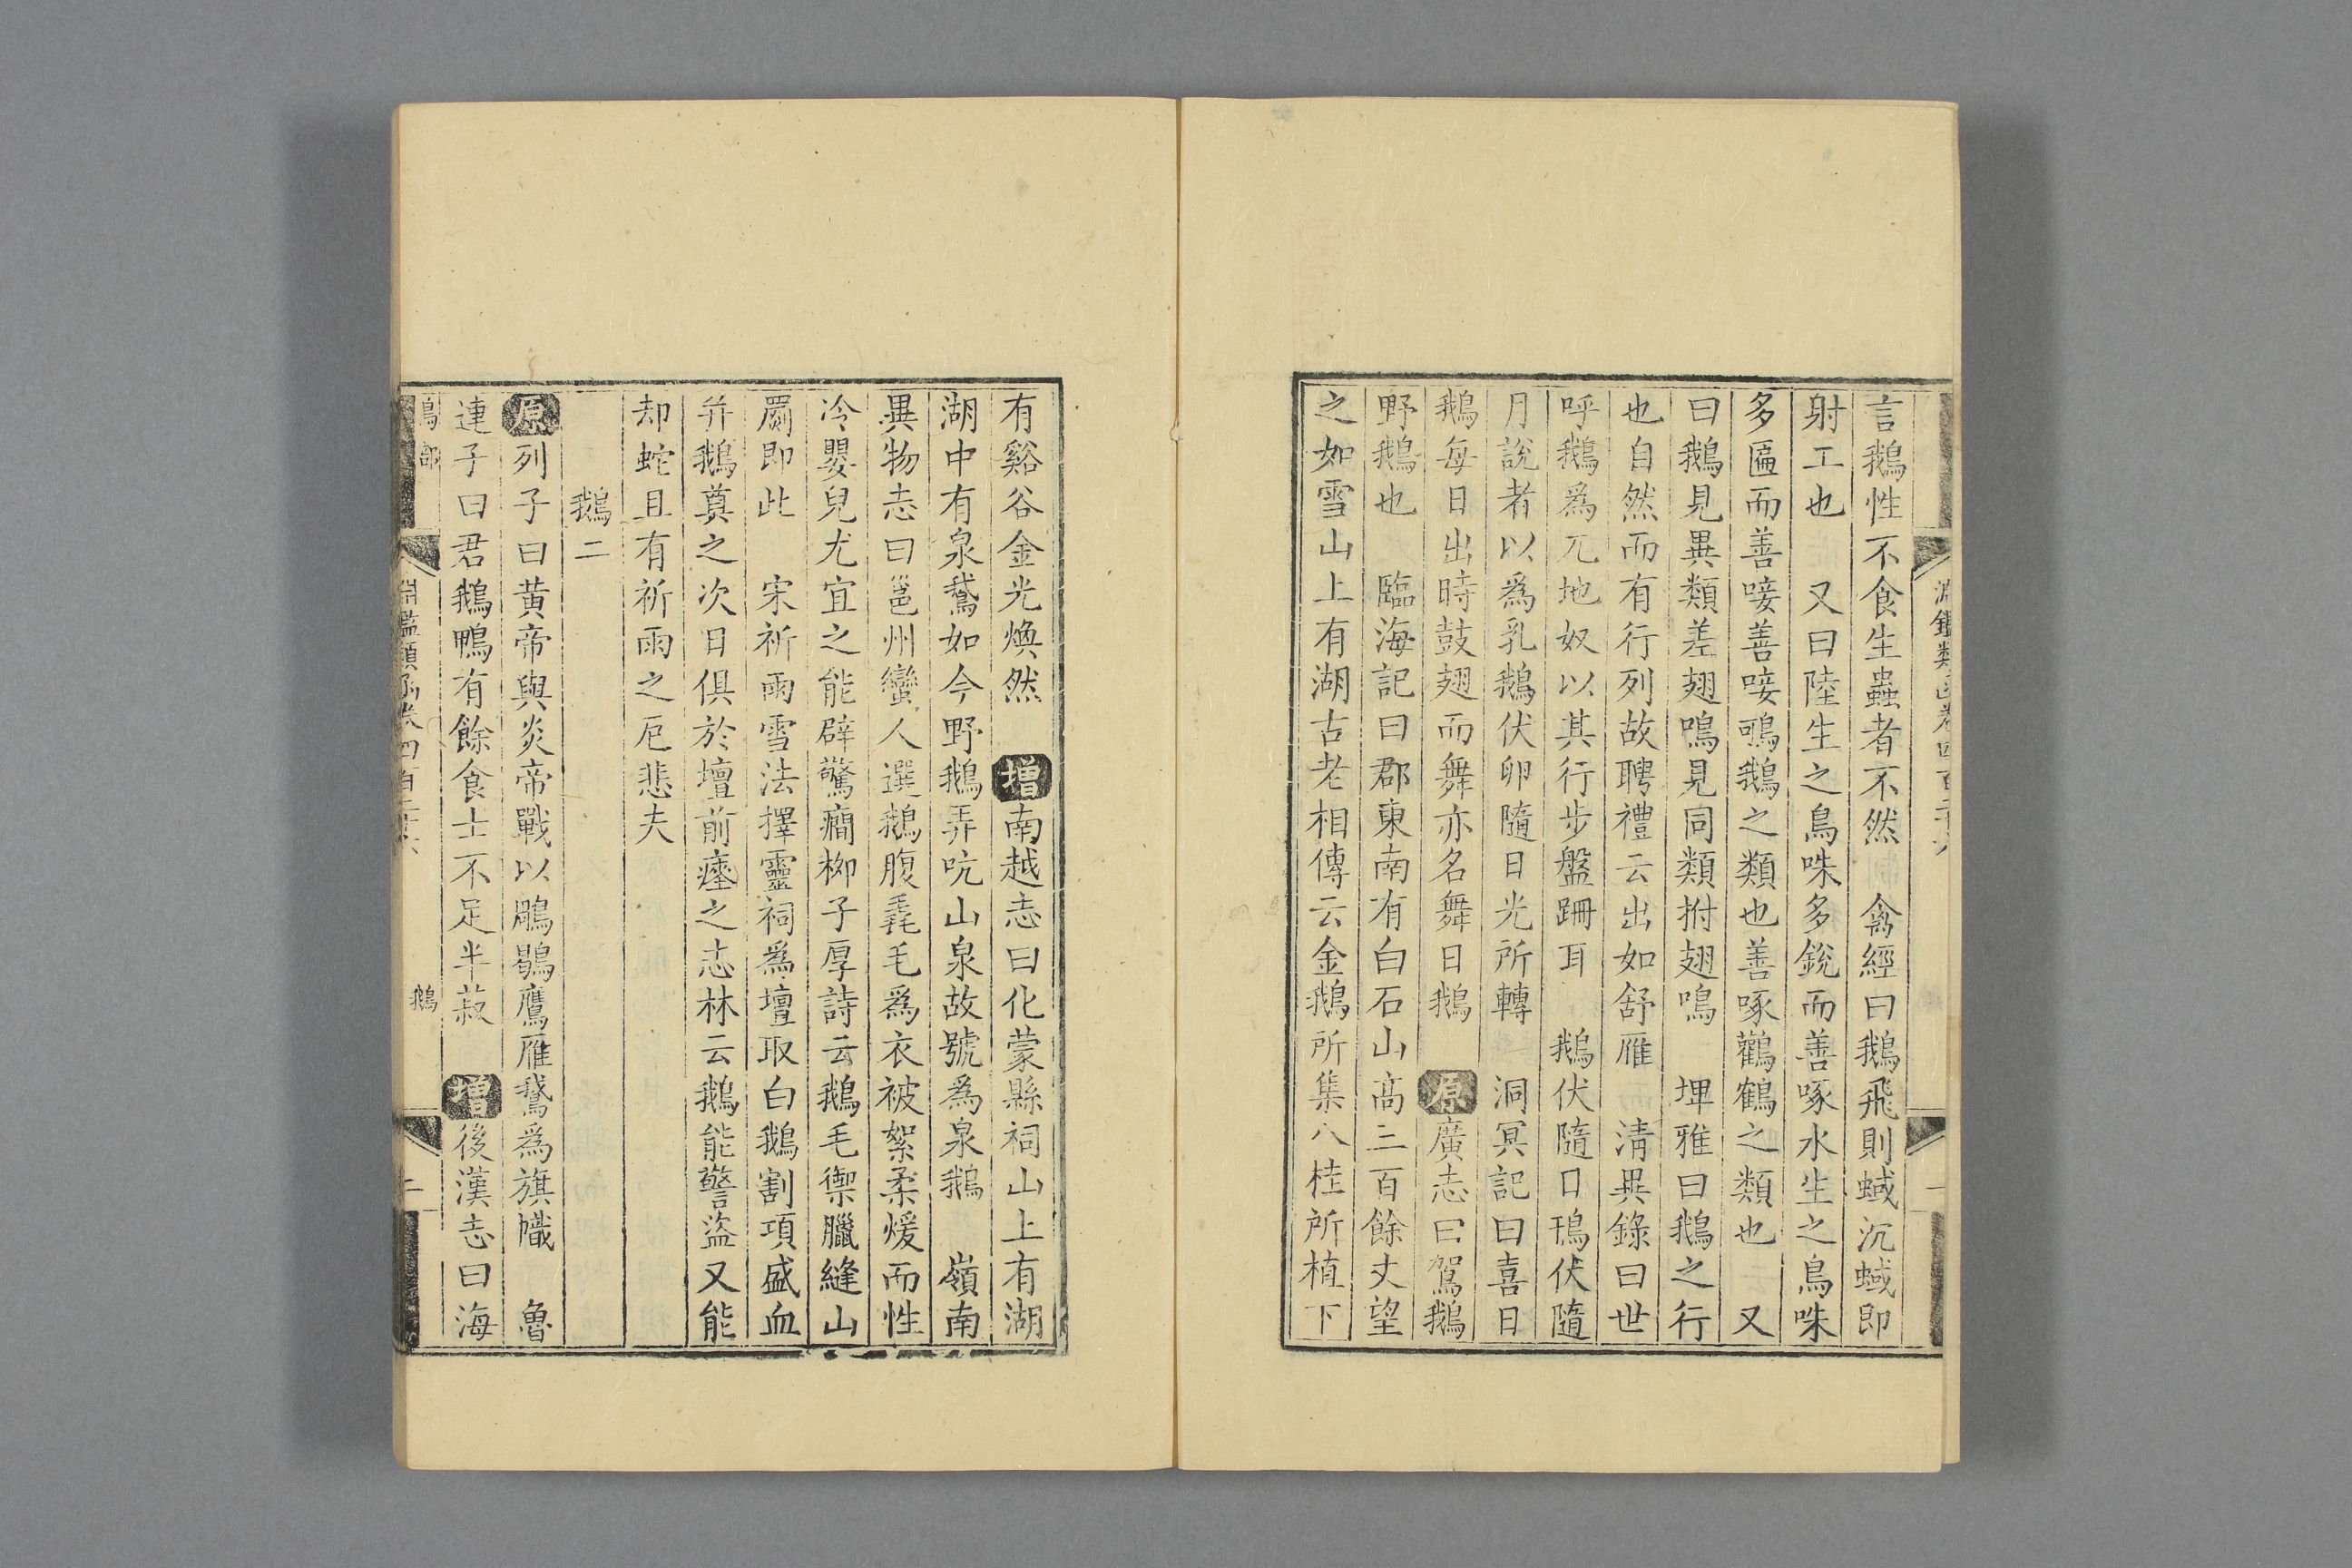 言鵝性不食生蟲者不然　禽經曰鵝飛則蜮沉蜮即
射工也　又曰陸生之鳥咮多銳而善啄水生之鳥咮
多匾而善唼善唼鳴鵝之類也善啄鸛鶴之類也　又
曰鵝見異類差翅鳴見同類拊翅鳴　埤雅曰鵝之行
也自然而有行列故聘禮云出如舒雁　清異錄曰世
呼鵝爲兀地奴以其行步盤跚耳　鵝伏隨日鳵伏隨
月說者以爲乳鵝伏卵隨日光所轉　洞冥記曰喜日
鵝每日出時鼓翅而舞亦名舞日鵝　原廣志曰駕鵝
野鵝也　臨海記曰郡東南有白石山高三百餘丈望
之如雪山上有湖古老相傳云金鵝所集八桂所植下
有谿谷金光煥然　增南越志曰化蒙縣祠山上有湖
湖中有泉鵞如今野鵝弄吭山泉故號爲泉鵝　嶺南
異物志曰邕州蠻人選鵝腹毳毛爲衣被絮柔煖而性
冷嬰兒尤宜之能辟驚癇柳子厚詩云鵝毛禦臘縫山
罽即此　宋祈雨雪法擇靈祠爲壇取白鵝割項盛血
并鵝奠之次日俱於壇前瘞之志林云鵝能警盜又能
却蛇且有祈雨之厄悲夫
鵝二
原列子曰黃帝與炎帝戰以鵰鶡鷹雁鵞爲旗幟　魯
連子曰君鵝鴨有餘食士不足半菽　增後漢志曰海
鳥部
淵鑑類函卷四百二十六
鵝